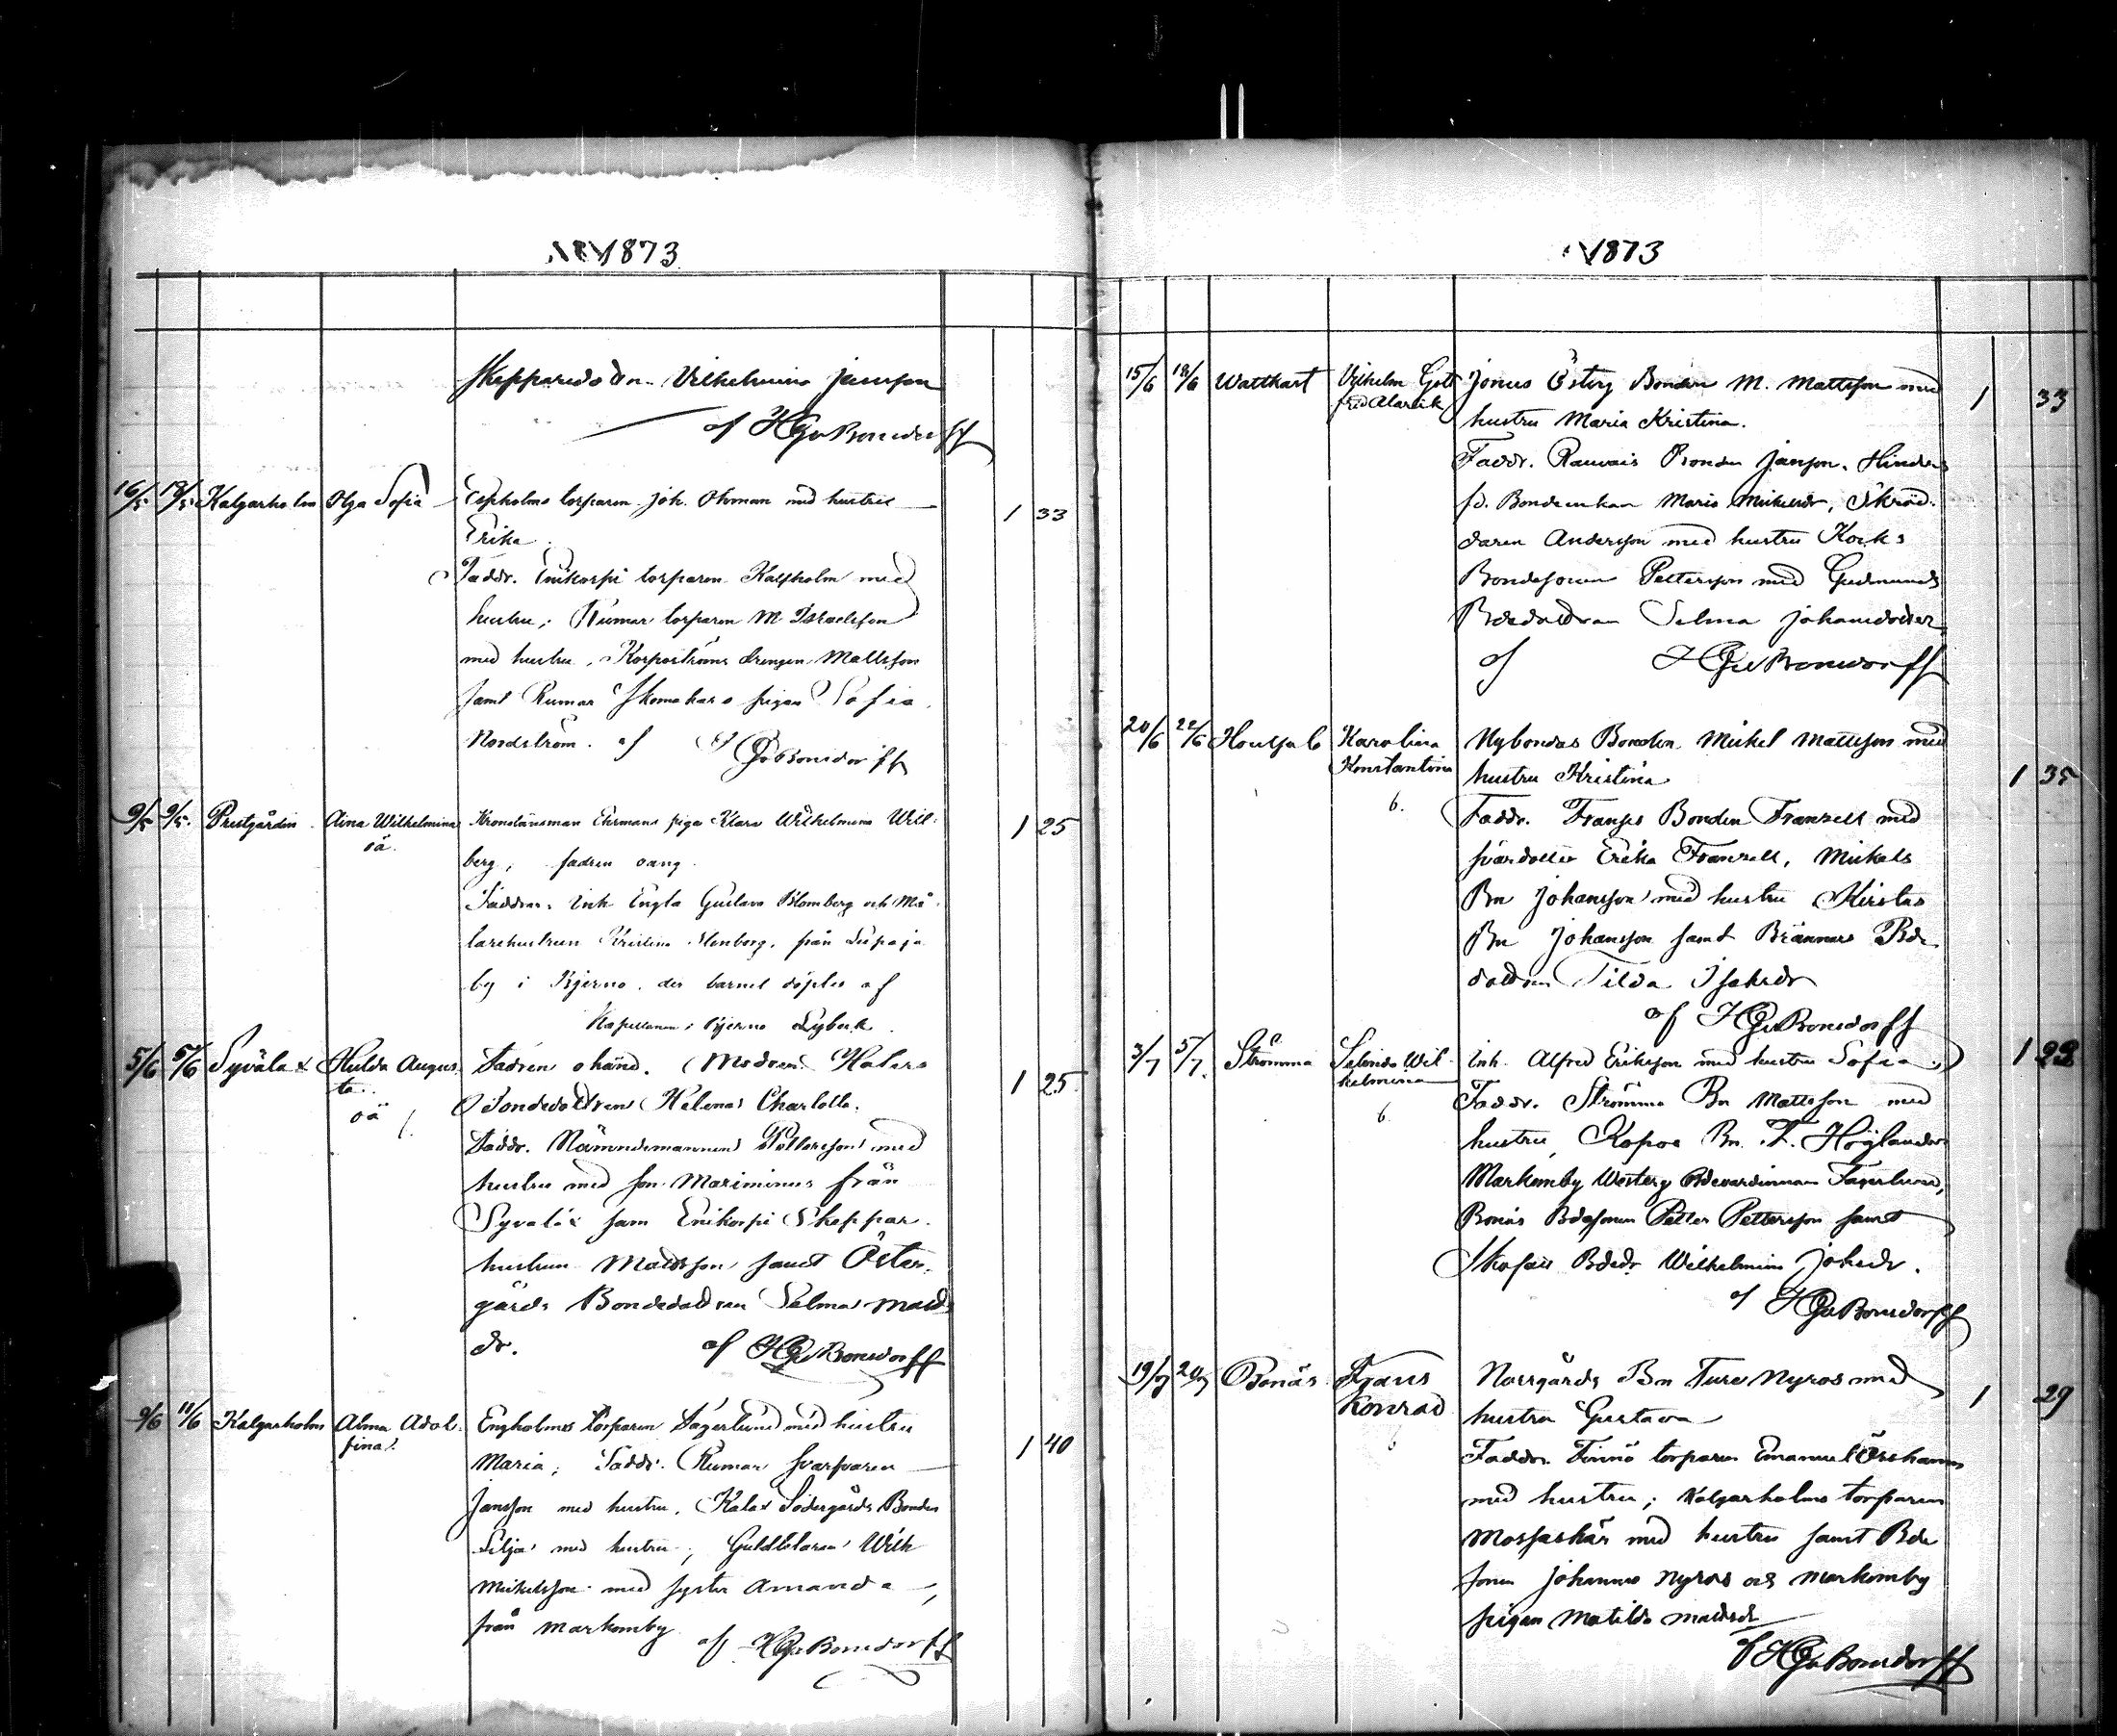 1873
Skepparedodn. Vilhelmina Jansson
af HGvBonsdorff
16/5 18/5 Kalgarholm Olga Sofia Espholms torparen Joh. Öhman med hustru 1 33
Erika.
Faddr. Enikorpi torparen Kalfholm med
hustru; Rumar torparen M Israelsson
med hustru, Korpoströms drengen Mattsson
samt Rumar Skomakars pigan Sofia
Nordström. af HGvBonsdorff
9/5 9/5. Prestgården Aina Wilhelmina Kronolänsman Ehrmans piga Klara Wilhelmina Wil- 1 25
oä.
berg; fadren oang.
Faddrar: Inh. Engla Gustava Blomberg och Må-
larehustrun Kristina Stenborg, från
by i Bjerno, der barnet döptes af
Kapellanen i Bjerno Lybeck.
5/6 5/6 Syvälax Hulda Augus- Fadren okänd. Modren 1 25
ta.
oä
Bondedottren Helena Charlotta.
Faddr. Nämndemannen Pettersson med
hustru med son Mariminus från
Syvälax sam Enikorpi Skeppar-
hustrun Mattsson samt Öster-
gårds Bondedottran Selma Matts
dr. af HGvBonsdorff
9/6 11/6 Kalgarholm Alma Adol- Engholms torparen Fagerlund med hustru 1 40
fina.
Maria; Faddr. Rumar svarfvaren
Jansson med hustru, Kalax Södergårds Bonden
Silja med hustru; Wilh
Mickelsson med syster Amanda,
från Markomby
af HGvBonsdorff
1873
15/6 18/6 Wattkast Vilhelm Gott- Jonus Österg Bonden M. Mattsson med 1 33
fred Alarik
hustru Maria Kristina.
Faddr. Rauvais Bonden Janson, Hinders
fd. Bondeenkan Maria Mickelsdr, Skräd-
daren Andersson med hustru Kocks
Bondesonen Pettersson med Gudmunds
Bdedottran Selma Johansdotter
af HGvBonsdorff
20/6 22/6 Houtsala Karolina Nybondas Bonden Mickel Mattsson med 1 35
Konstantina hustru Kristina
6.
Faddr. Franses Bonden Franzell med
svärdotter Erika Franzell, Mickels
Bn Johansson med hustru Kirstas
Bn Johansson samt Brännars Bde
dottren Tilda Isaksdr
af HGvBonsdorff
3/7 5/7. Strömma Selinda Wil- Inh. Alfred Eriksson med hustru Sofia 1 22
helmina
6.
Faddr. Strömma Bn Mattsson med
hustru, Kopoe Bn. F. Höglander
Markomby Westerg Bdevärdinnan Fagerlund,
Bonäs Bdesonen Petter Pettersson samt
Bdedr. Wilhelmina Johsdr.
af HGvBonsdorff
19/7 20/7 Bonäs Frans Norrgårds Bn Ture Nyros med 1 29
Konrad hustru Gustava
6
Faddr. Finnö torparen Emanuel
med hustru; Kalgarholms torparen
Mossaskär med hustru samt Bde
sonen Johannes Nyros och Markomby
pigan Matilda Mattsdr
af HGvBonsdorff